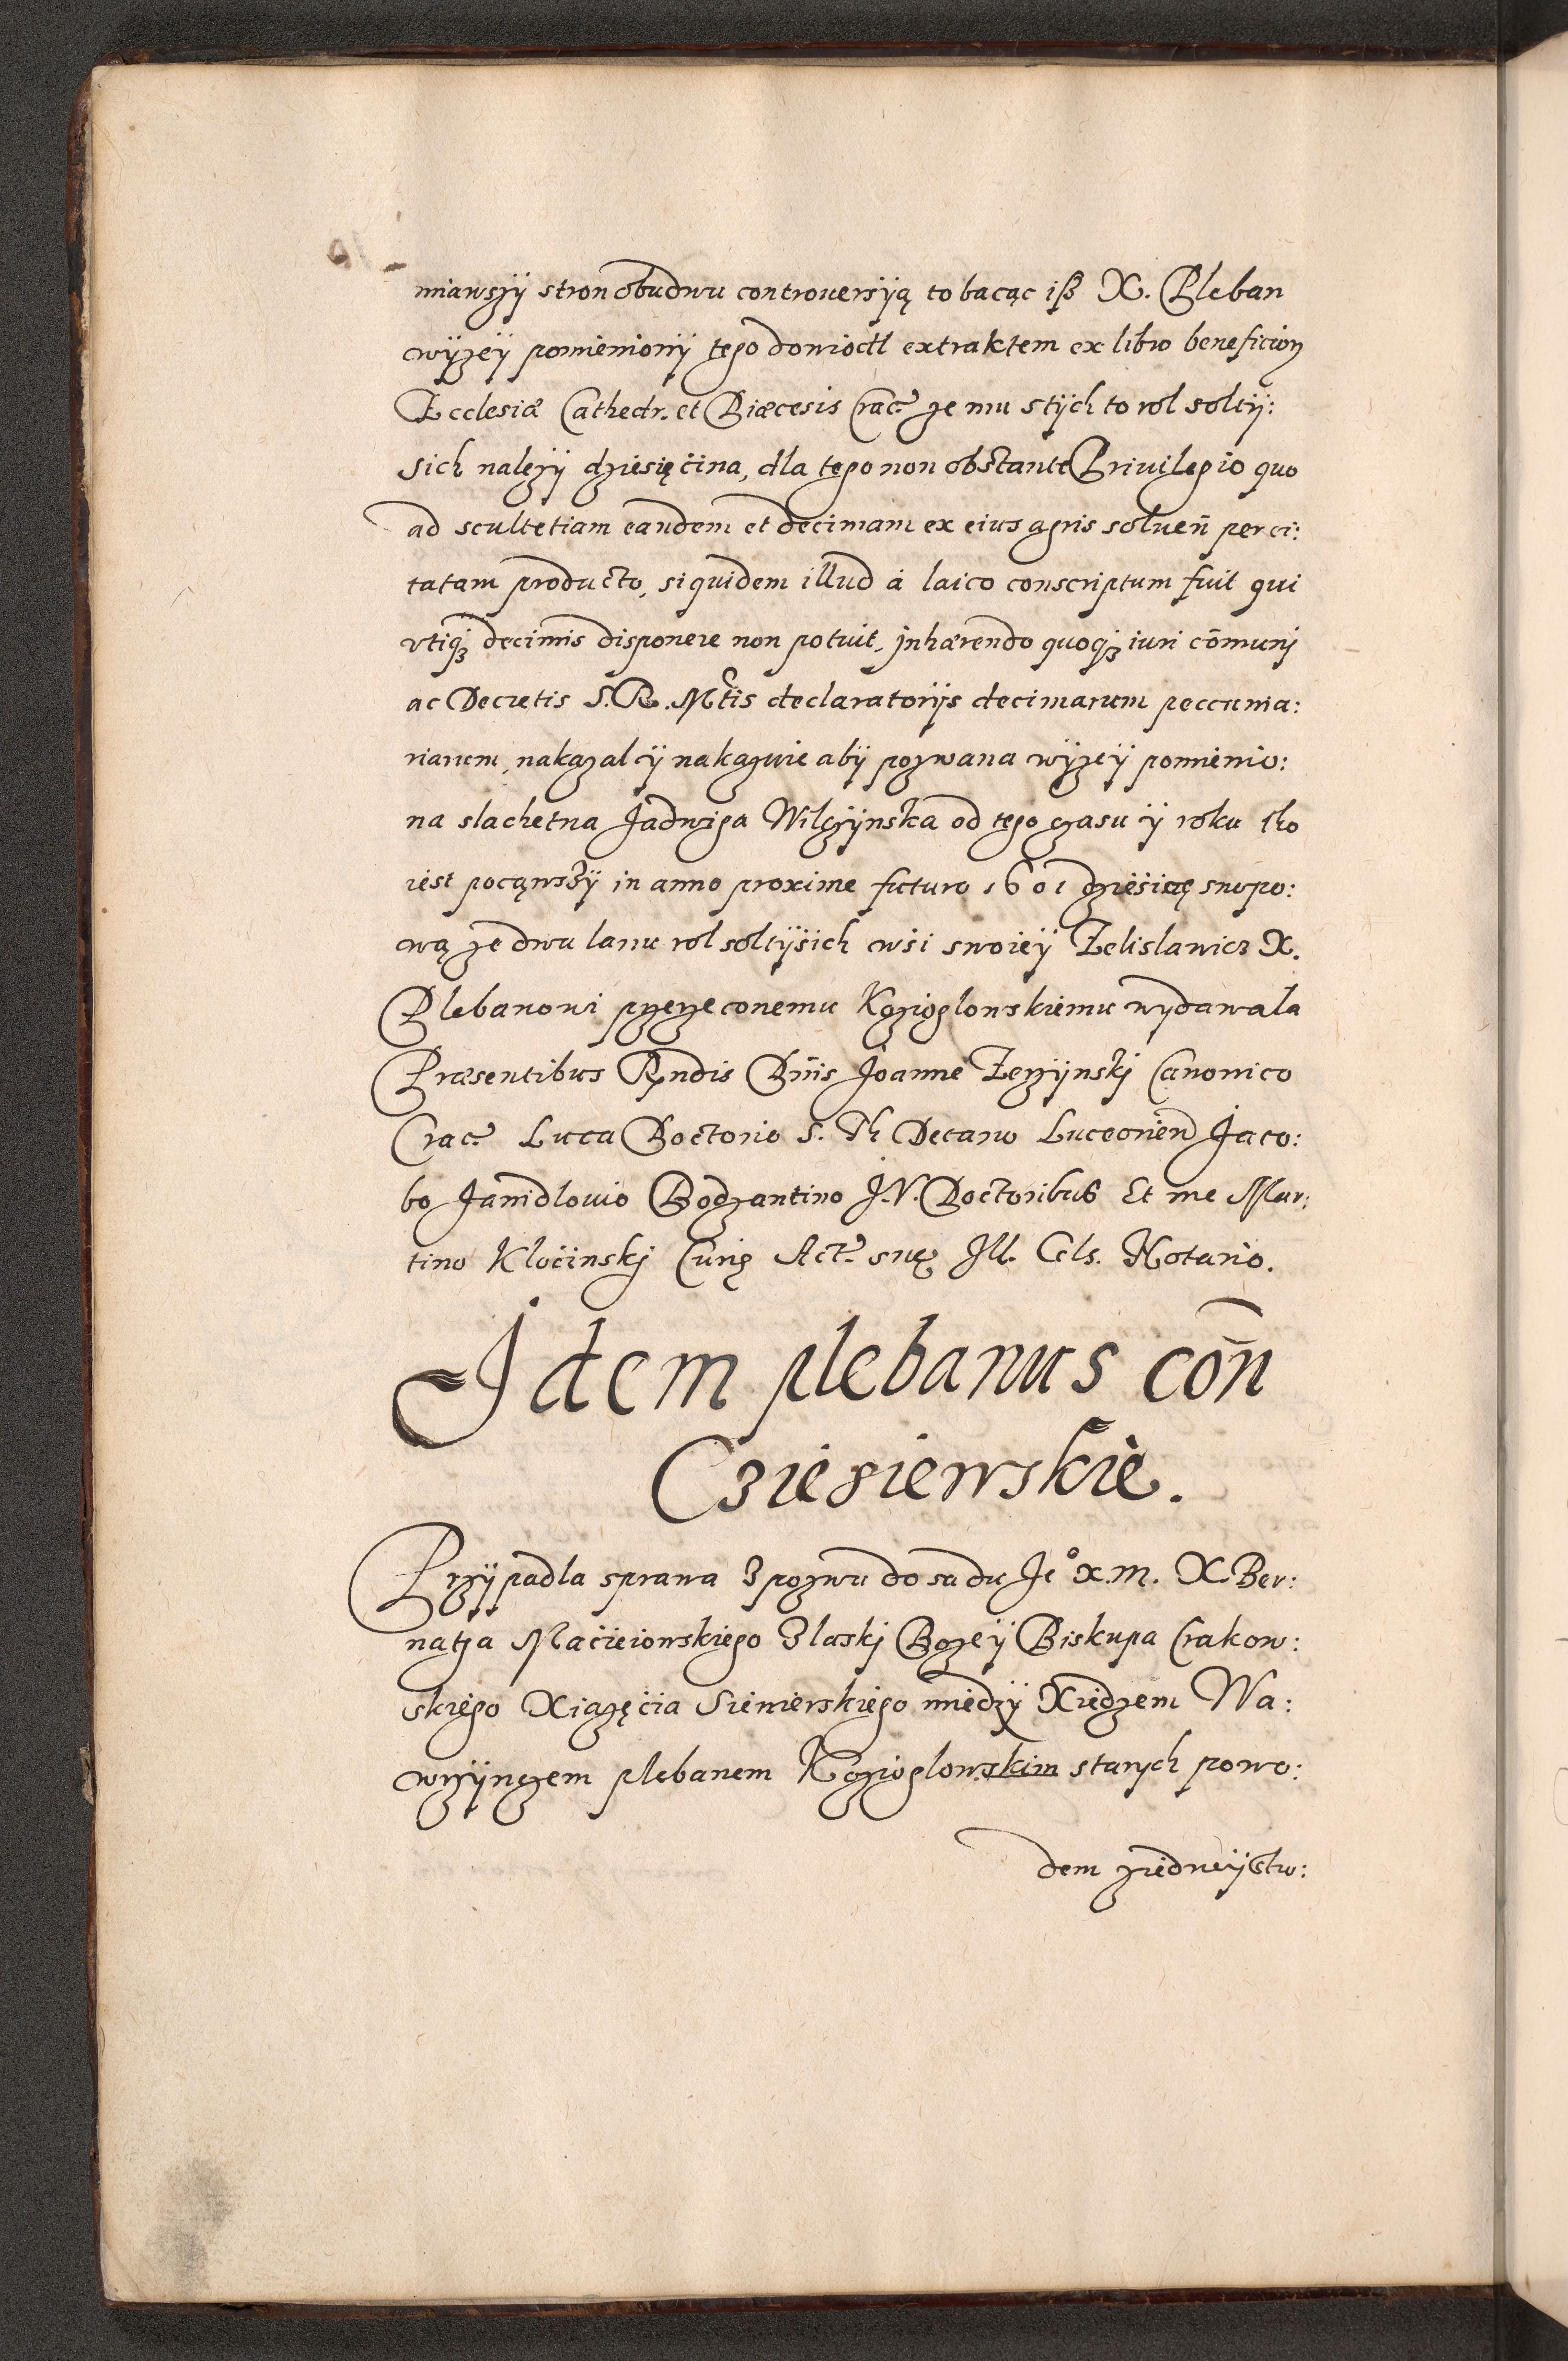 miawszÿ stron obudwu controuersÿą to bacąc iß X. Pleban
wÿzeÿ pomienionÿ tego doniodł extraktem ex libro beneficioꝝ
Ecclesiæ Cathedr. et Diæcesis Crac. ze mu stÿch to rol soltÿ:
sich nalezÿ dziesięćina, dla tego non obstante Priuilegio quo
ad scultetiam eandem et decimam ex eius agris soluen̄ per ci:
tatam producto, siquidem illud à laico conscriptum fuit qui
vtiqꝫ decimis disponere non potuit, jnhærendo quoqꝫ iuri cōmunj
ac Decretis S. R. Mtis declaratorijs decimarum peccunia:
riarum, nakazal ÿ nakazuie abÿ pozwana wÿzeÿ pomienio:
na slachetna Jadwiga Wilczÿnska od tego czasu ÿ roku tho
iest pocąwszÿ in anno proxime futuro 1601 dzieśięcę snopo:
wą ze dwu lanu rol soltÿśich wśi swoieÿ Zelislawicz X.
Plebanowi przerzeconemu Kozioglowskiemu wydawala
Præsentibus Rṇdis Dn̄is Joanne Zerzÿnskj Canonico
Crac. Luca Doctorio S. Th Decano Luceorien̄ Jaco:
bo Janidlouio Bodzantino J. V. Doctoribus Et me Mar:
tino Kloćinskj Curię Act. suę Ill. Cels. Notario.
Jdem plebanus con̄
Cziesiewskie.
Przÿpadla sprawa z pozwu do sadu Je° x. m. X. Ber:
natha Maćieiowskiego z laskj Bozeÿ Biskupa Crakow:
skiego Xiazęćia Siewierskiego miedzÿ Xiedzem Wa:
wrzÿnczem plebanem Kozioglowskim starych powo:
dem ziedneÿ stro: